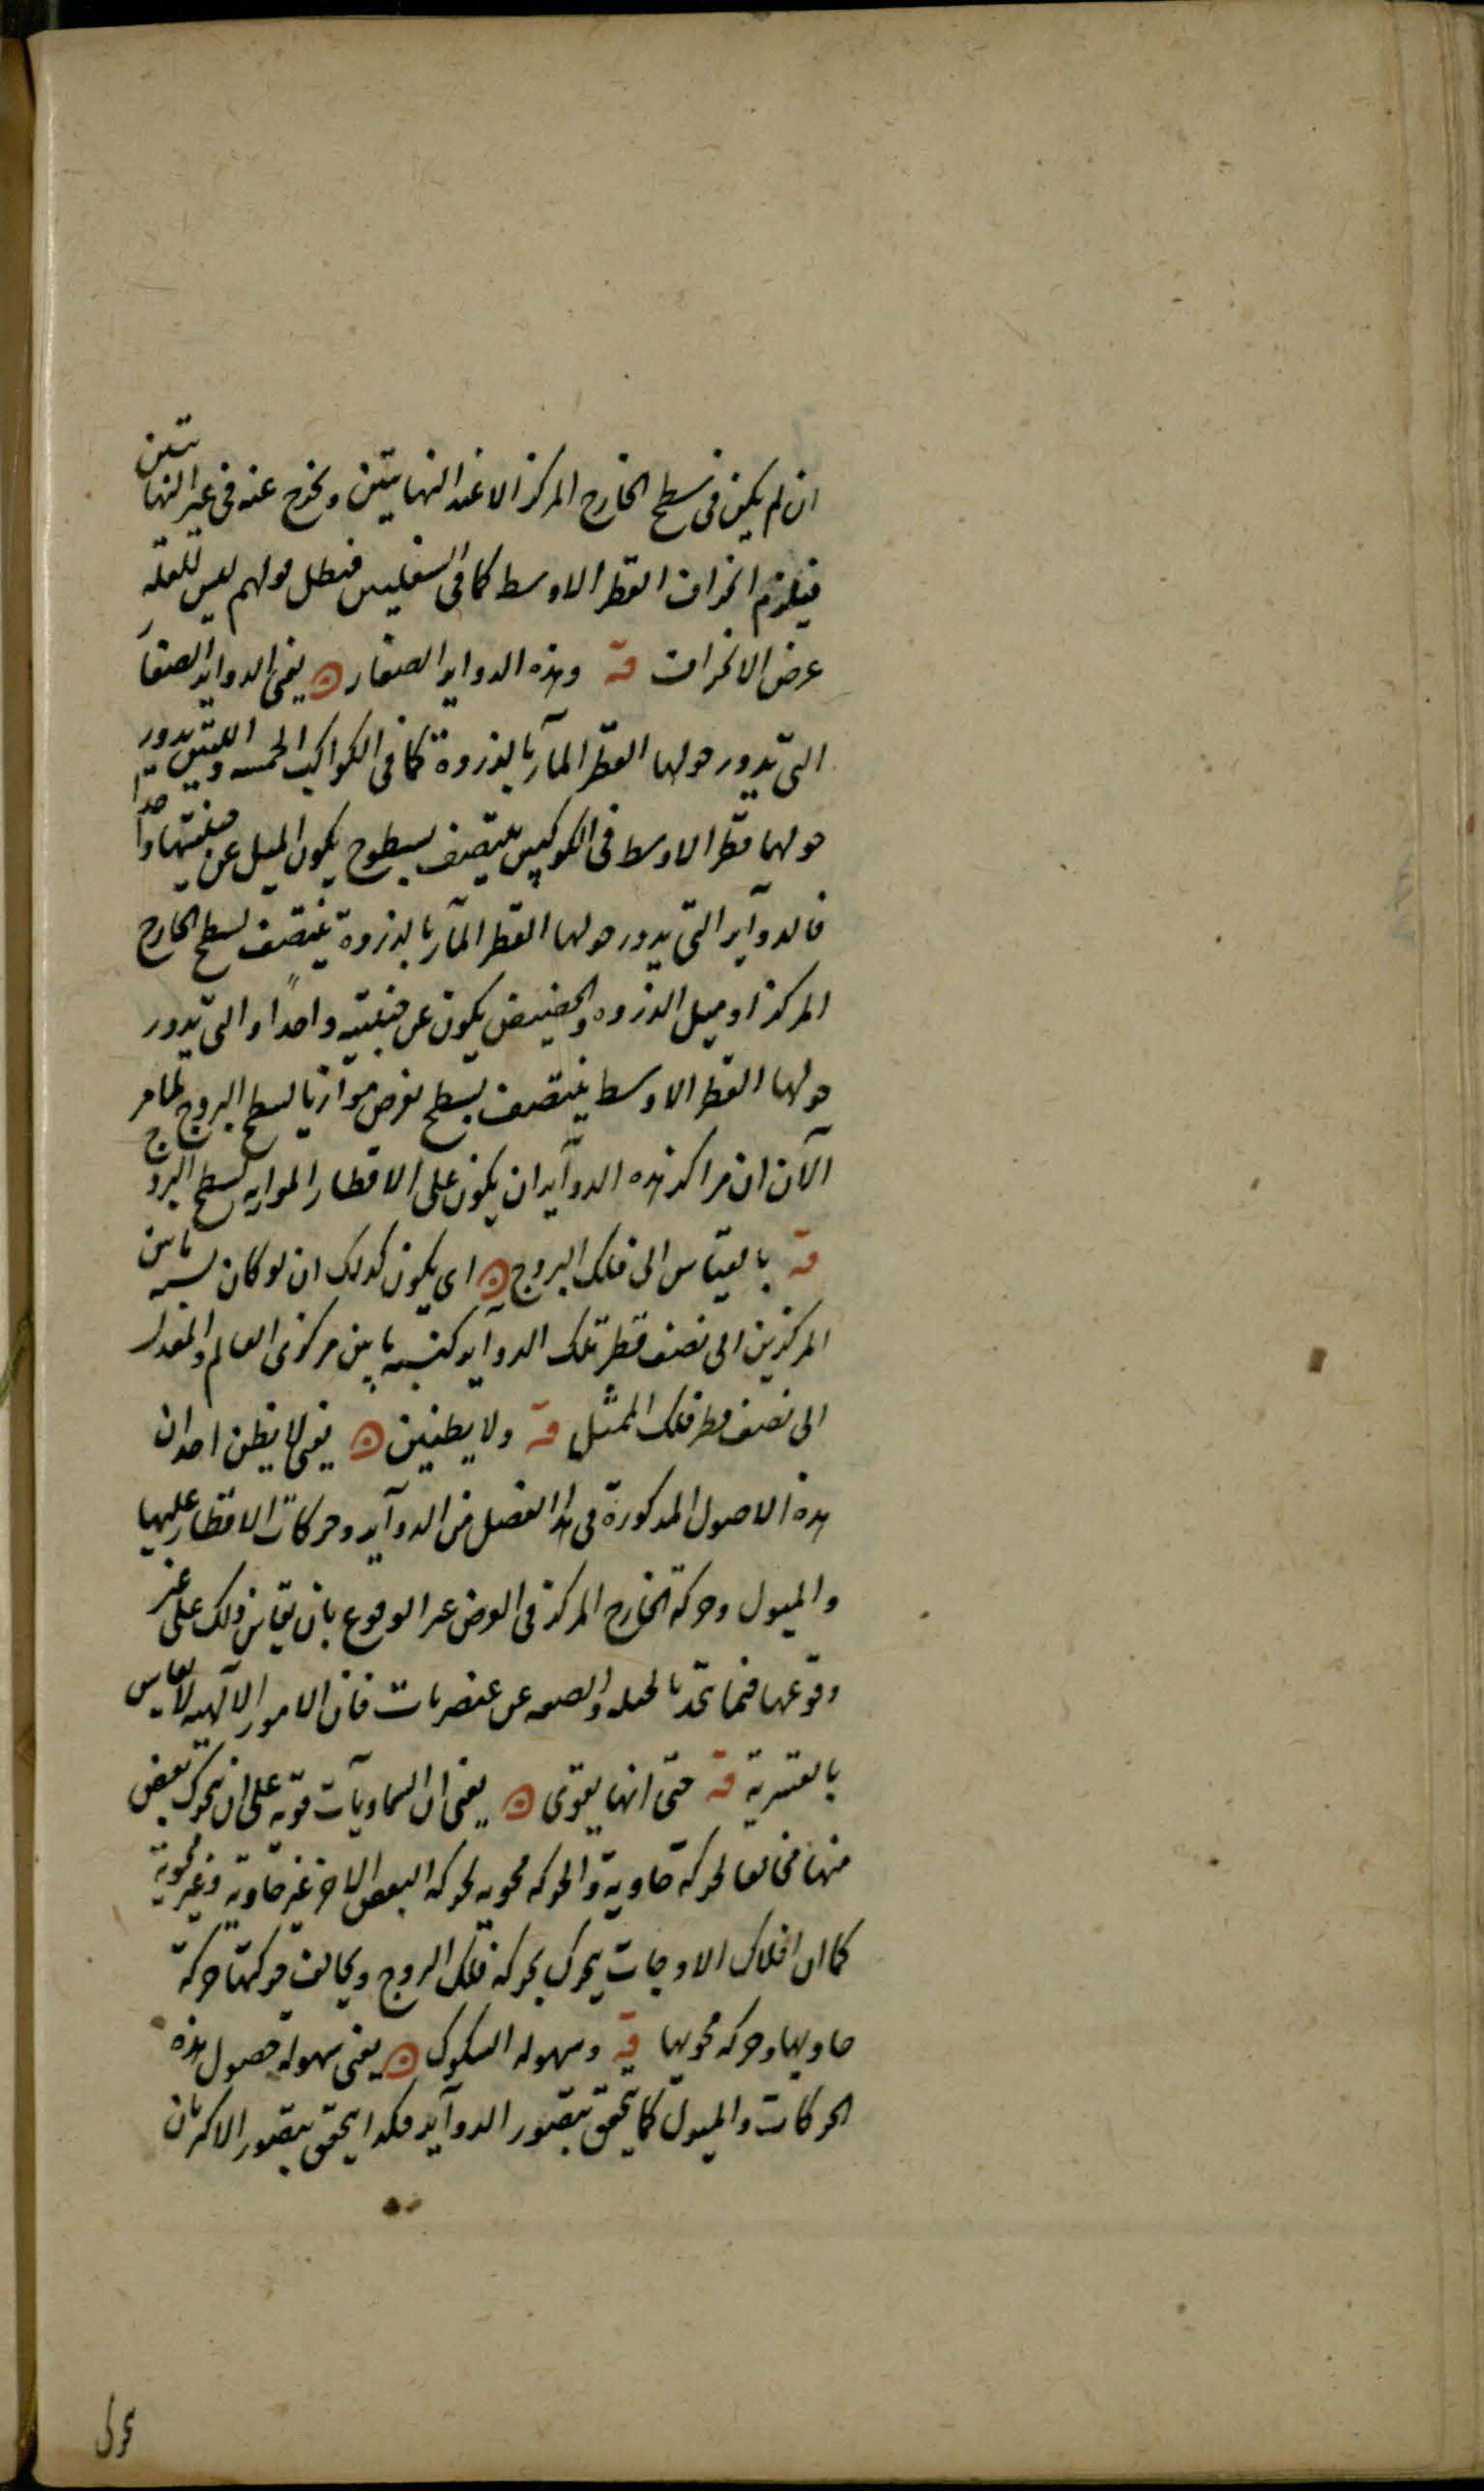 ان لم يكن فى سطح الخارج المركز الا عند النهايتين ويخرج عنه فى غير النهايتين
فيلزم انحراف القطر الاوسط كما فى السفليين فبطل قولهم ليس للعلة
عرض الانحراف قه وهذه الدواير الصغار ⦿ يعنى الدواير الصغار
التى تدور حولها القطر المار بالذروة كما فى الكواكب الخمسة واللتين يدور
حولهما قطر الاوسط فى الكوكبين ينتصف بسطوح يكون الميل عن جنبتيها واحدا
فالدوآير التى يدور حولها القطر المآر بالذروة ينتصف بسطح الخارج
المركز اذ ميل الذروه والحضيض يكون عن جنبتيه واحدًا والتى تدور
حولها القطر الاوسط ينتصف بسطح يفرض موازيا لسطح البروج لما مر
الآن ان مراكز هذه الدوآير ان يكون على الاقطار الموازيه لسطح البروج
قه بالقياس الى فلك البروج ⦿ اى يكون كذلك ان لو كان نسبه ما بين
المركزين الى نصف قطر تلك الدوآير كنسبه ما بين مركزى العالم والمعدل
الى نصف قطر فلك الممثل قه ولا يظنين ⦿ يعنى لا يظن احد ان
هذه الاصول المذكورة فى هذا الفصل من الدوآير وحركات الاقطار عليها
والميول وحركة الخارج المركز فى العرض عسر الوقوع بان يقاس ذلك على عسر
وقوعها فيما يتخذ بالحيله والصنعه من عنصريات فان الامور الالهيه لا تقاس
بالقسرية قه حتى انها يقوى ⦿ يعنى ان السماويات قويه على ان يتحرك بعض
منها مخالفا لحركة حاوية والحركه محويه لحركه البعض الاخر غير حاويه وغير محوية
كما ان افلاك الاوجات يتحرك بحركه فلك البروج ويخالف حركتها حركة
حاويها وحركه محويها قه وسهوله السلوك ⦿ يعنى سهولة حصول هذه
الحركات والميول كما يتحقق بتصور الدوآير هكذا يتحقق بتصور الاكر بان